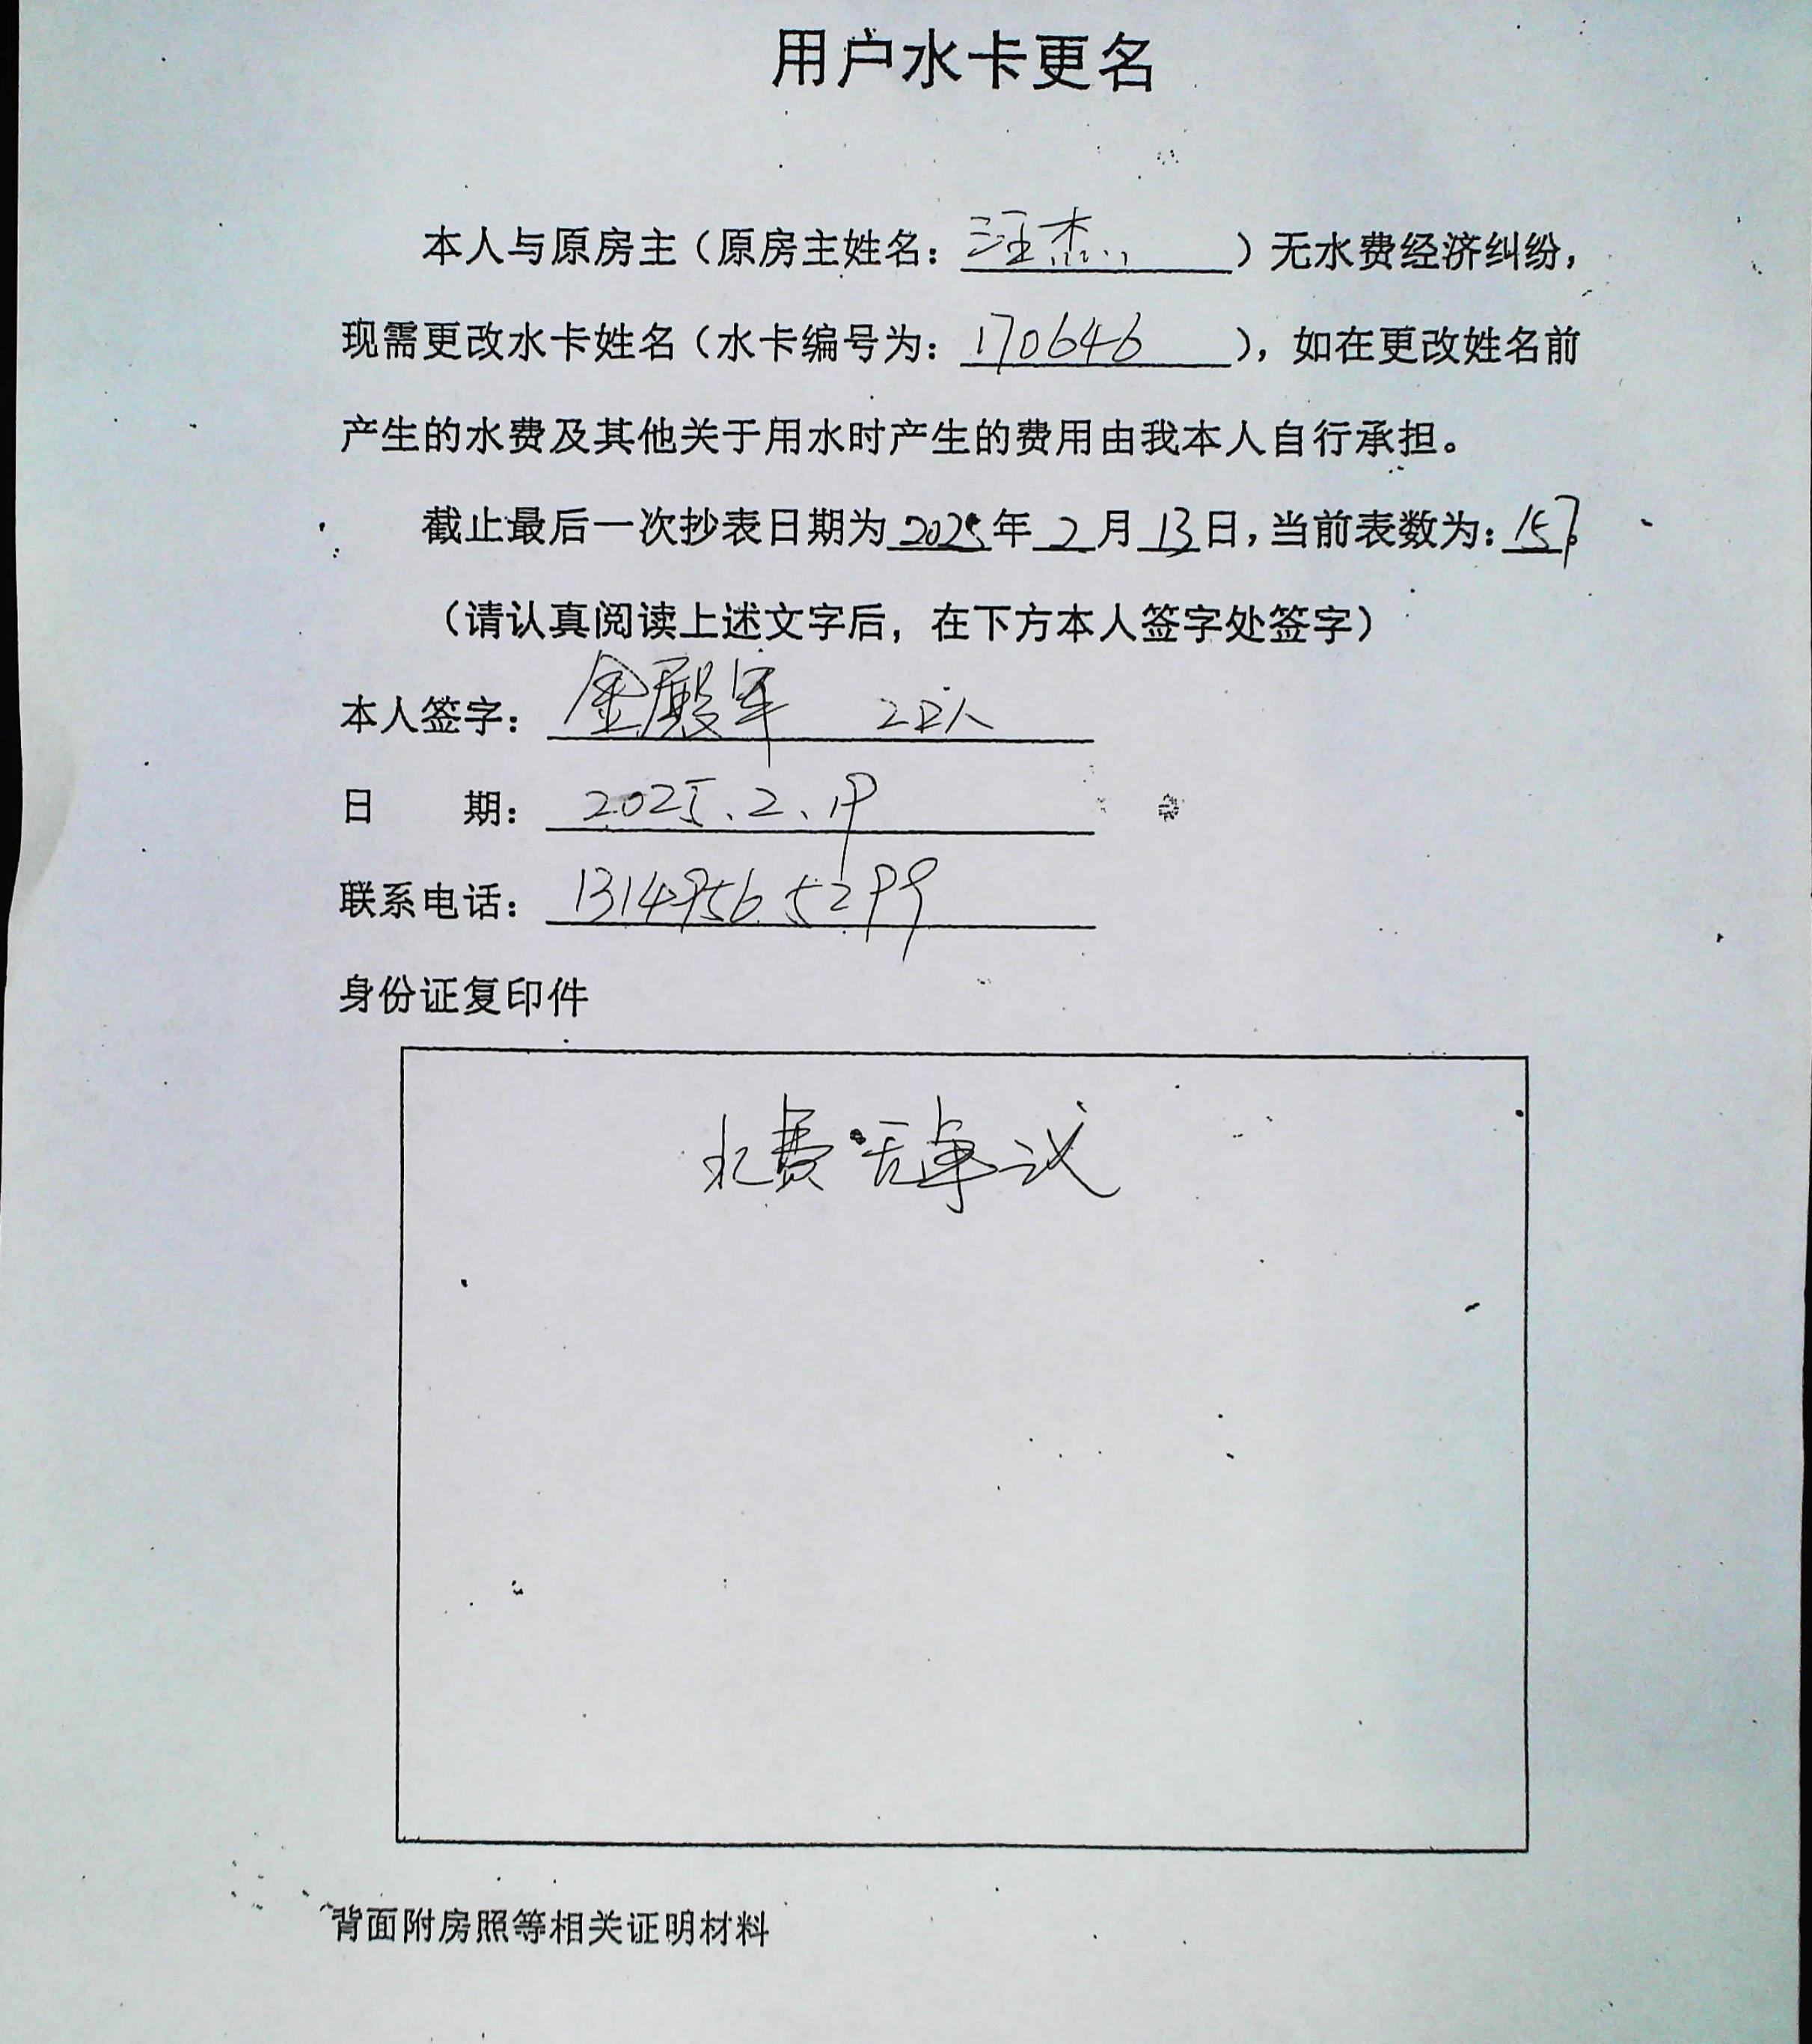 用户水卡更名
本人与原房主（原房主姓名：汪杰）无水费经济纠纷，
现需更改水卡姓名（水卡编号为：170646），如在更改姓名前
产生的水费及其他关于用水时产生的费用由我本人自行承担。
截止最后一次抄表日期为2025年2月13日，当前表数为：157。
（请认真阅读上述文字后，在下方本人签字处签字）
本人签字：金殿军 2口人
日 期：2025.2.19
联系电话：13149565299
身份证复印件
水费无争议
背面附房照等相关证明材料